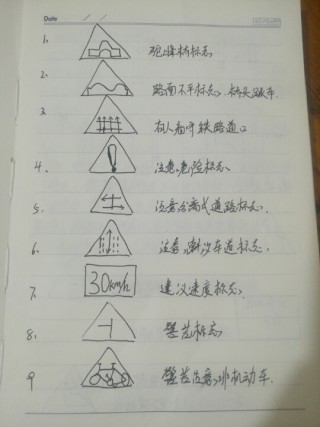 Date / /
1. 驼峰桥标志
2. 路面不平标志、桥头跳车.
3 有人看守铁路道口
4. ! 注意危险标志.
5. 注意分离式道路标志.
6. 注意潮汐车道标志.
7. 30km/h 建议速度标志.
8. 警告标志.
9 警告注意非机动车.